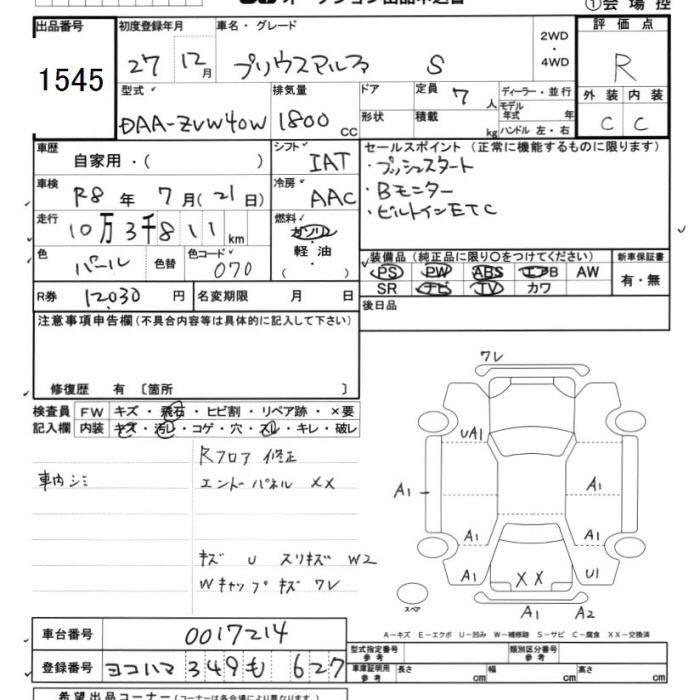 オークション出品申込書 ①会場控
出品番号 1545
初度登録年月 27年 12月
車名・グレード プリウスアルファ S
2WD ・ 4WD
評価点 R
外装 内装
C C
型式 DAA-ZVW40W
排気量 1800 CC
ドア 形状
定員 7 人
積載 kg
ディーラー・並行
モデル年式 年
ハンドル 左・右
車歴 自家用・( )
シフト IAT
車検 R8 年 7 月(21日)
冷房 AAC
走行 10万3千811 km
燃料 ガソリン・軽油・( )
色 パール 色替
色コード 070
R券 12030 円
名変期限 月 日
セールスポイント(正常に機能するものに限ります)
・プッシュスタート
・Bモニター
・ビルトインETC
装備品(純正品に限り○をつけてください)
PS PW ABS エアB AW
SR ナビ TV カワ
新車保証書 有・無
後日品
注意事項申告欄(不具合内容等は具体的に記入して下さい)
修復歴 有 〔箇所 〕
検査員記入欄
FW キズ・飛石・ヒビ割・リペア跡・×要
内装 キズ・汚レ・コゲ・穴・スレ・キレ・破レ
Rフロア 修正
車内シミ
エンドーパネル XX
キズ U スリキズ W2
Wキャップキズ ワレ
ワレ
UA1
A1 A1
A1 A1
A1 XX U1
スペア A1 A2
A-キズ E-エクボ U-凹み W-補修跡 S-サビ C-腐食 XX-交換済
車台番号 0017214
登録番号 ヨコハマ 349 も 627
型式指定番号 参考
類別区分番号 参考
車庫証明用 参考 長さ cm 幅 cm 高さ cm
希望出品コーナー(コーナーは各会場により異なります。)